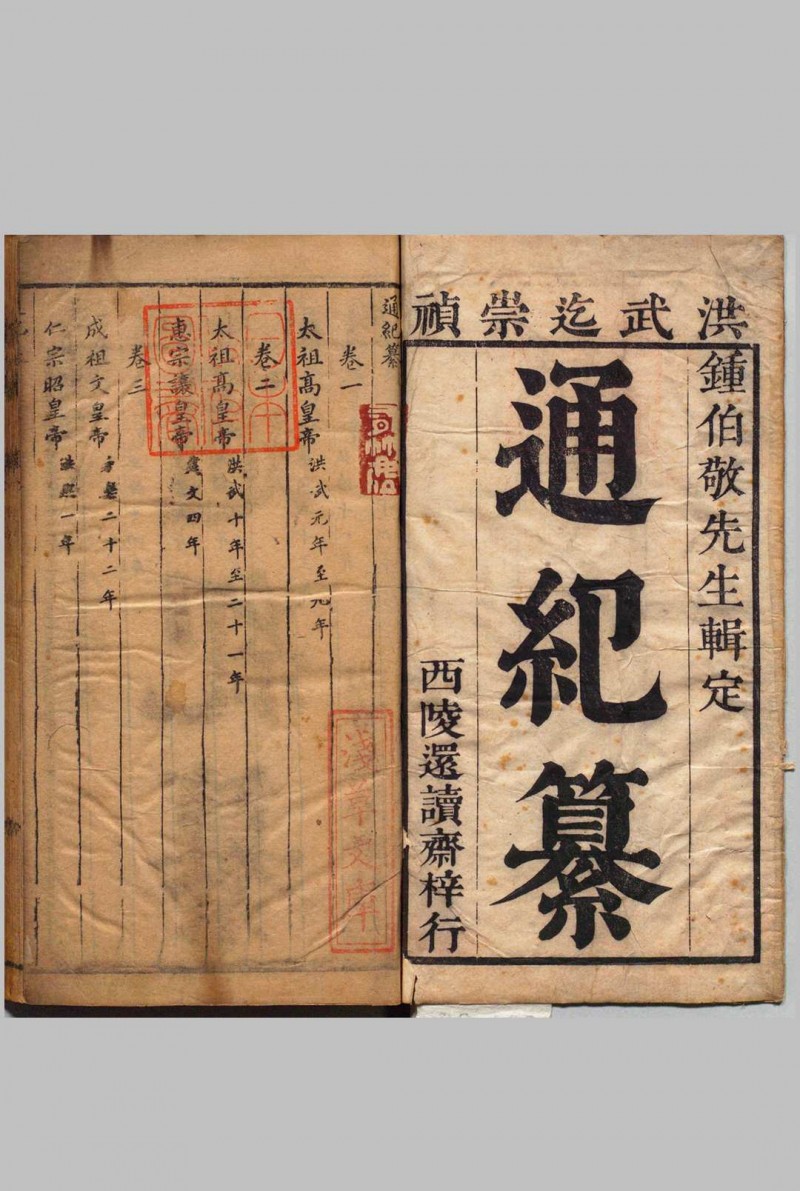 洪武迄崇禎
鍾伯敬先生輯定
通紀纂
西陵還讀齋梓行
通紀纂
卷一
太祖高皇帝 洪武元年至九年
卷二
太祖高皇帝 洪武十年至二十一年
惠宗讓皇帝 建文四年
卷三
成祖文皇帝 永樂二十二年
仁宗昭皇帝 洪熙一年
淺草文庫